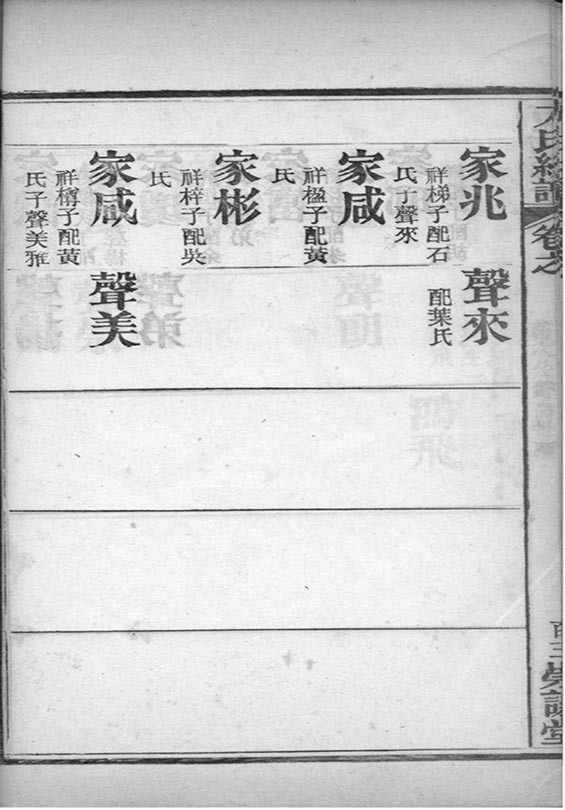 家兆
祥梯子配石
氏子聲來
聲來
配葉氏
家咸
祥楹子配黃
氏
家彬
祥梓子配吳
氏
家咸
氏子聲美雅
聲美
氏總譜
卷之